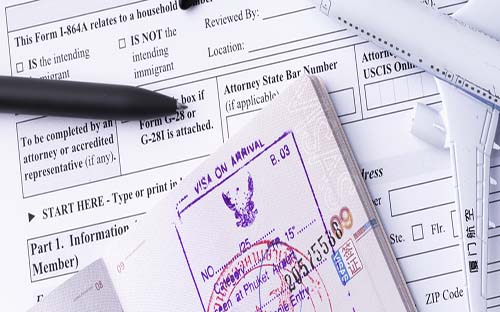 This Form I-864A relates to a household
IS the intending
immigrant
IS NOT the
intending
immigrant
Reviewed By:
Location:
To be completed by an
attorney or accredited
representative (if any).
box if
Form G-28 or
G-28I is attached.
Attorney State Bar Number
(if applicable)
Attorney
USCIS Onl
START HERE - Type or print in
Part 1. Information
Member)
VISA ON ARRIVAL
B.03
NO.
125
15
Category
Seen at Phuket Airport
Single Entry
205755889
09
09
08
Ste.
Flr.
ZIP Code
ZIP Code
厦门航空